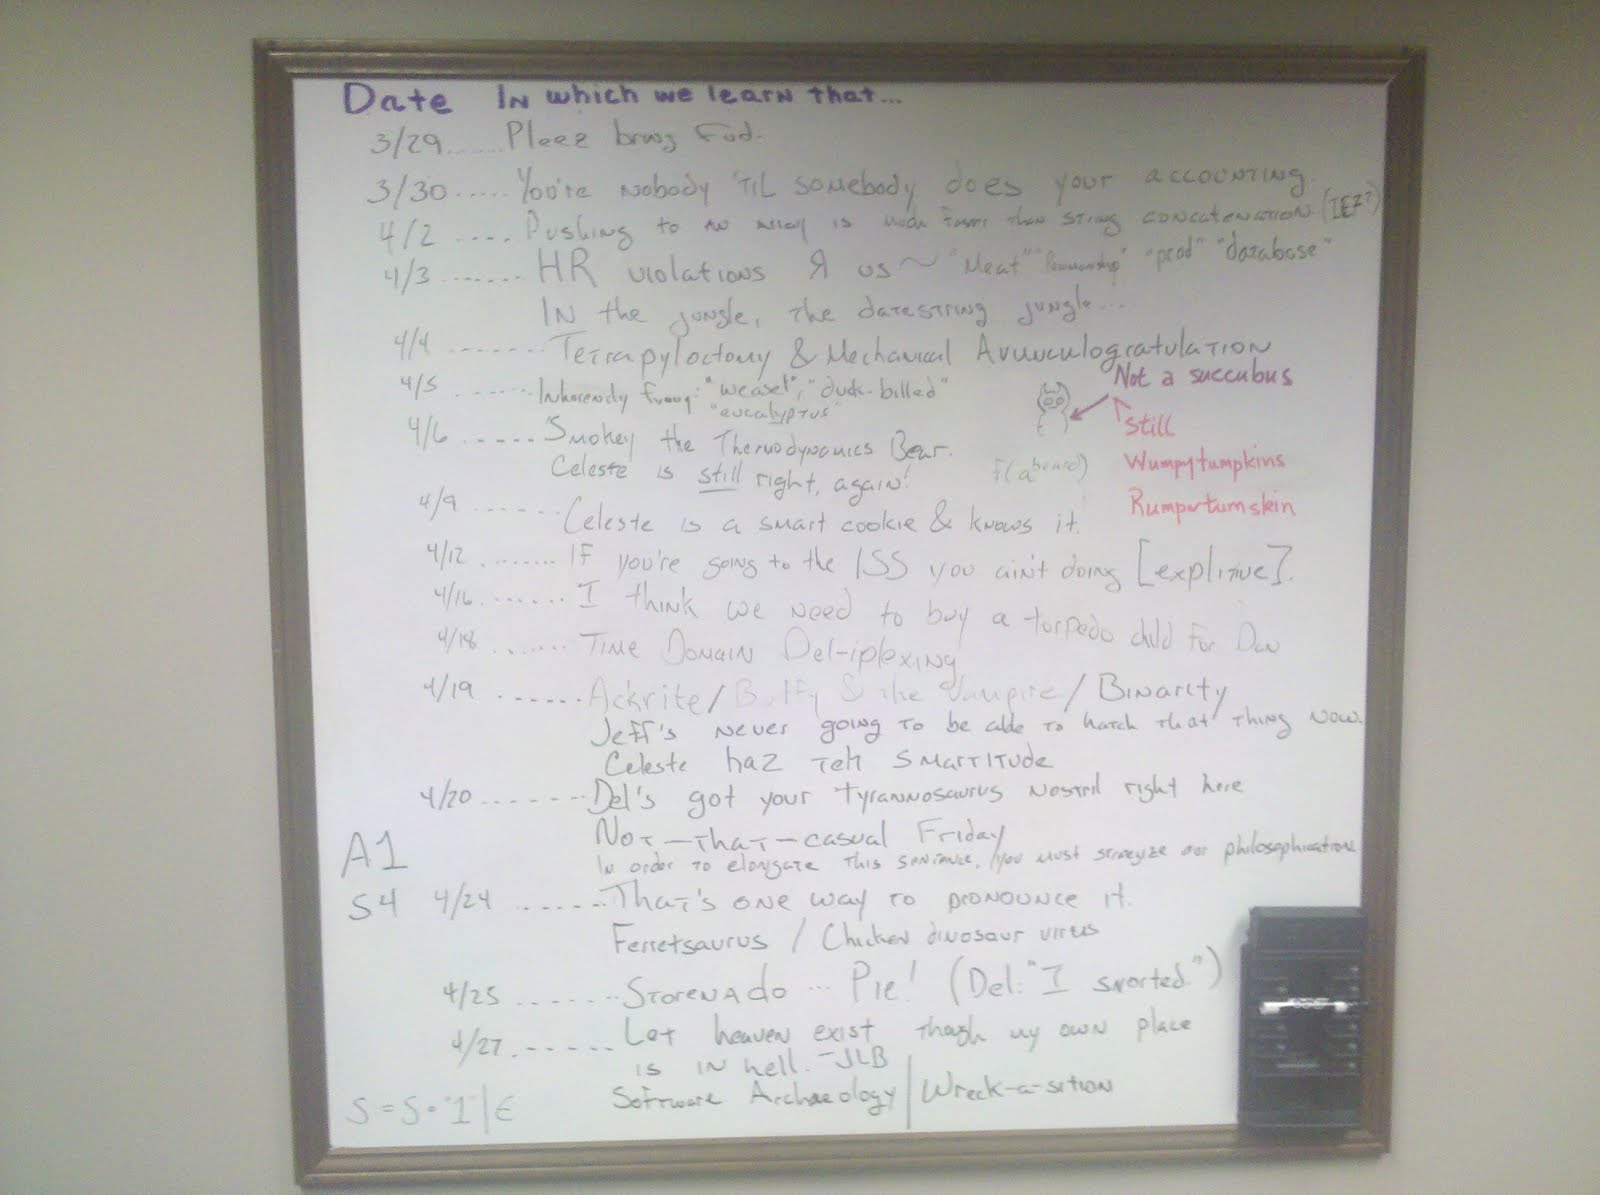 Date In which we learn that...
3/29 ....... Pleez bring Fud.
3/30 ..... You're nobody 'til somebody does your accounting.
4/2 .... Pushing to an array is much faster than string concatenation (IE7?)
4/3 ....... HR violations Я us ~ "Meat" "prod" "database"
In the jungle, the datestring jungle...
4/4 ....... Tetrapyloctomy & Mechanical Avunculogratulation
4/5 ....... Inherently funny: "weasel", "duck-billed"
"eucalyptus"
Not a succubus
Still
4/6 ...... Smokey the Thermodynamics Bear.
Celeste is still right, again!
Wumpytumpkins
Rumpertumskin
4/9 ...... Celeste is a smart cookie & knows it.
4/12 ........ If you're going to the ISS you ain't doing [explitive].
4/16 ....... I think we need to buy a torpedo child for Dan
4/18 ....... Time Domain Del-iplexing
4/19 ...... Ackrite/Buffy & the Vampire/Binarity
Jeff's never going to be able to hatch that thing now.
Celeste haz teh smartitude
4/20 ....... Del's got your tyrannosaurus nostril right here
Not-that-casual Friday
In order to elongate this sentence, you must our philosophication
A1
S4
4/24 ...... That's one way to pronounce it.
Ferretsaurus / Chicken dinosaur virus
4/25 ....... Storenado ... Pie! (Del: "I snorted.")
4/27 ...... Let heaven exist though my own place
is in hell. -JLB
Software Archaeology | Wreck-a-sition
S = S = "1" | ∈